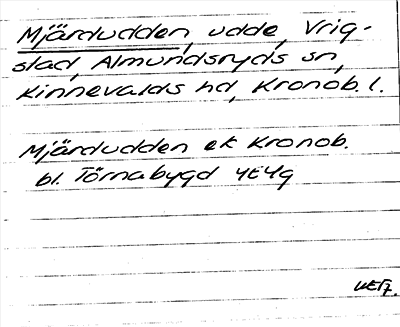 Mjärdudden, udde, Vrig-
stad, Almundsryds sn,
Kinnevalds hd, Kronob. l.
Mjärdudden ek Kronob.
bl. Törnabygd 4E4g